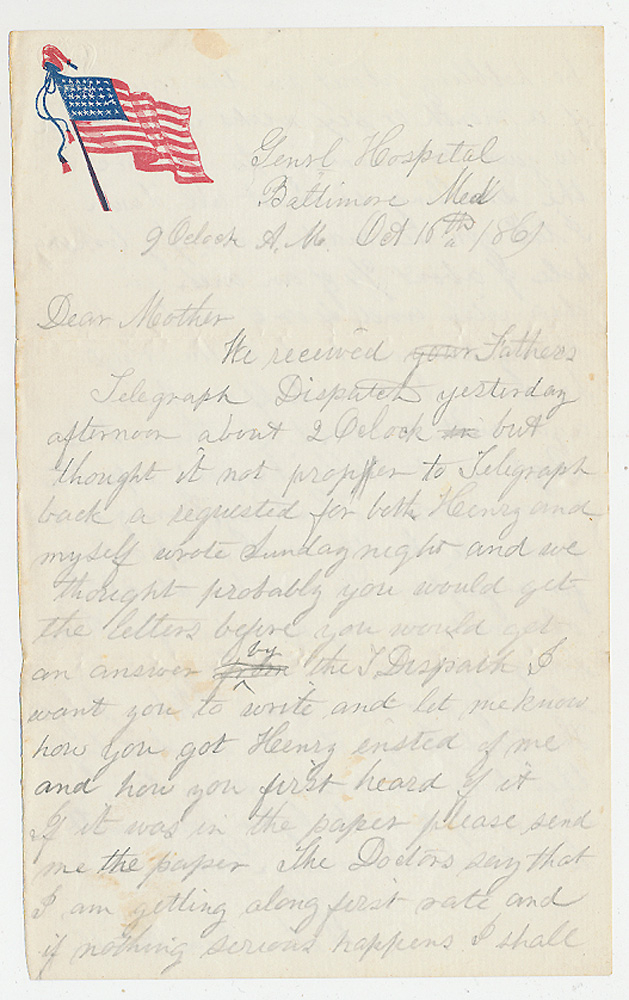 Genrl Hospital
Baltimore Md
9 Oclock A.M. Oct 16th 1861
Dear Mother
We received your Fathers
Telegraph Dispatch yesterday
afternoon about 2 Oclock in but
thought it not propper to Telegraph
back a requested for both Henry and
myself wrote Sunday night and we
thought probably you would get
the letters before you would get
an answer from by the T Dispath I
want you to write and let me know
how you got Henry ensted of me
and how you first heard of it
If it was in the paper please send
me the paper The Doctors say that
I am getting along first rate and
if nothing serious happens I shall